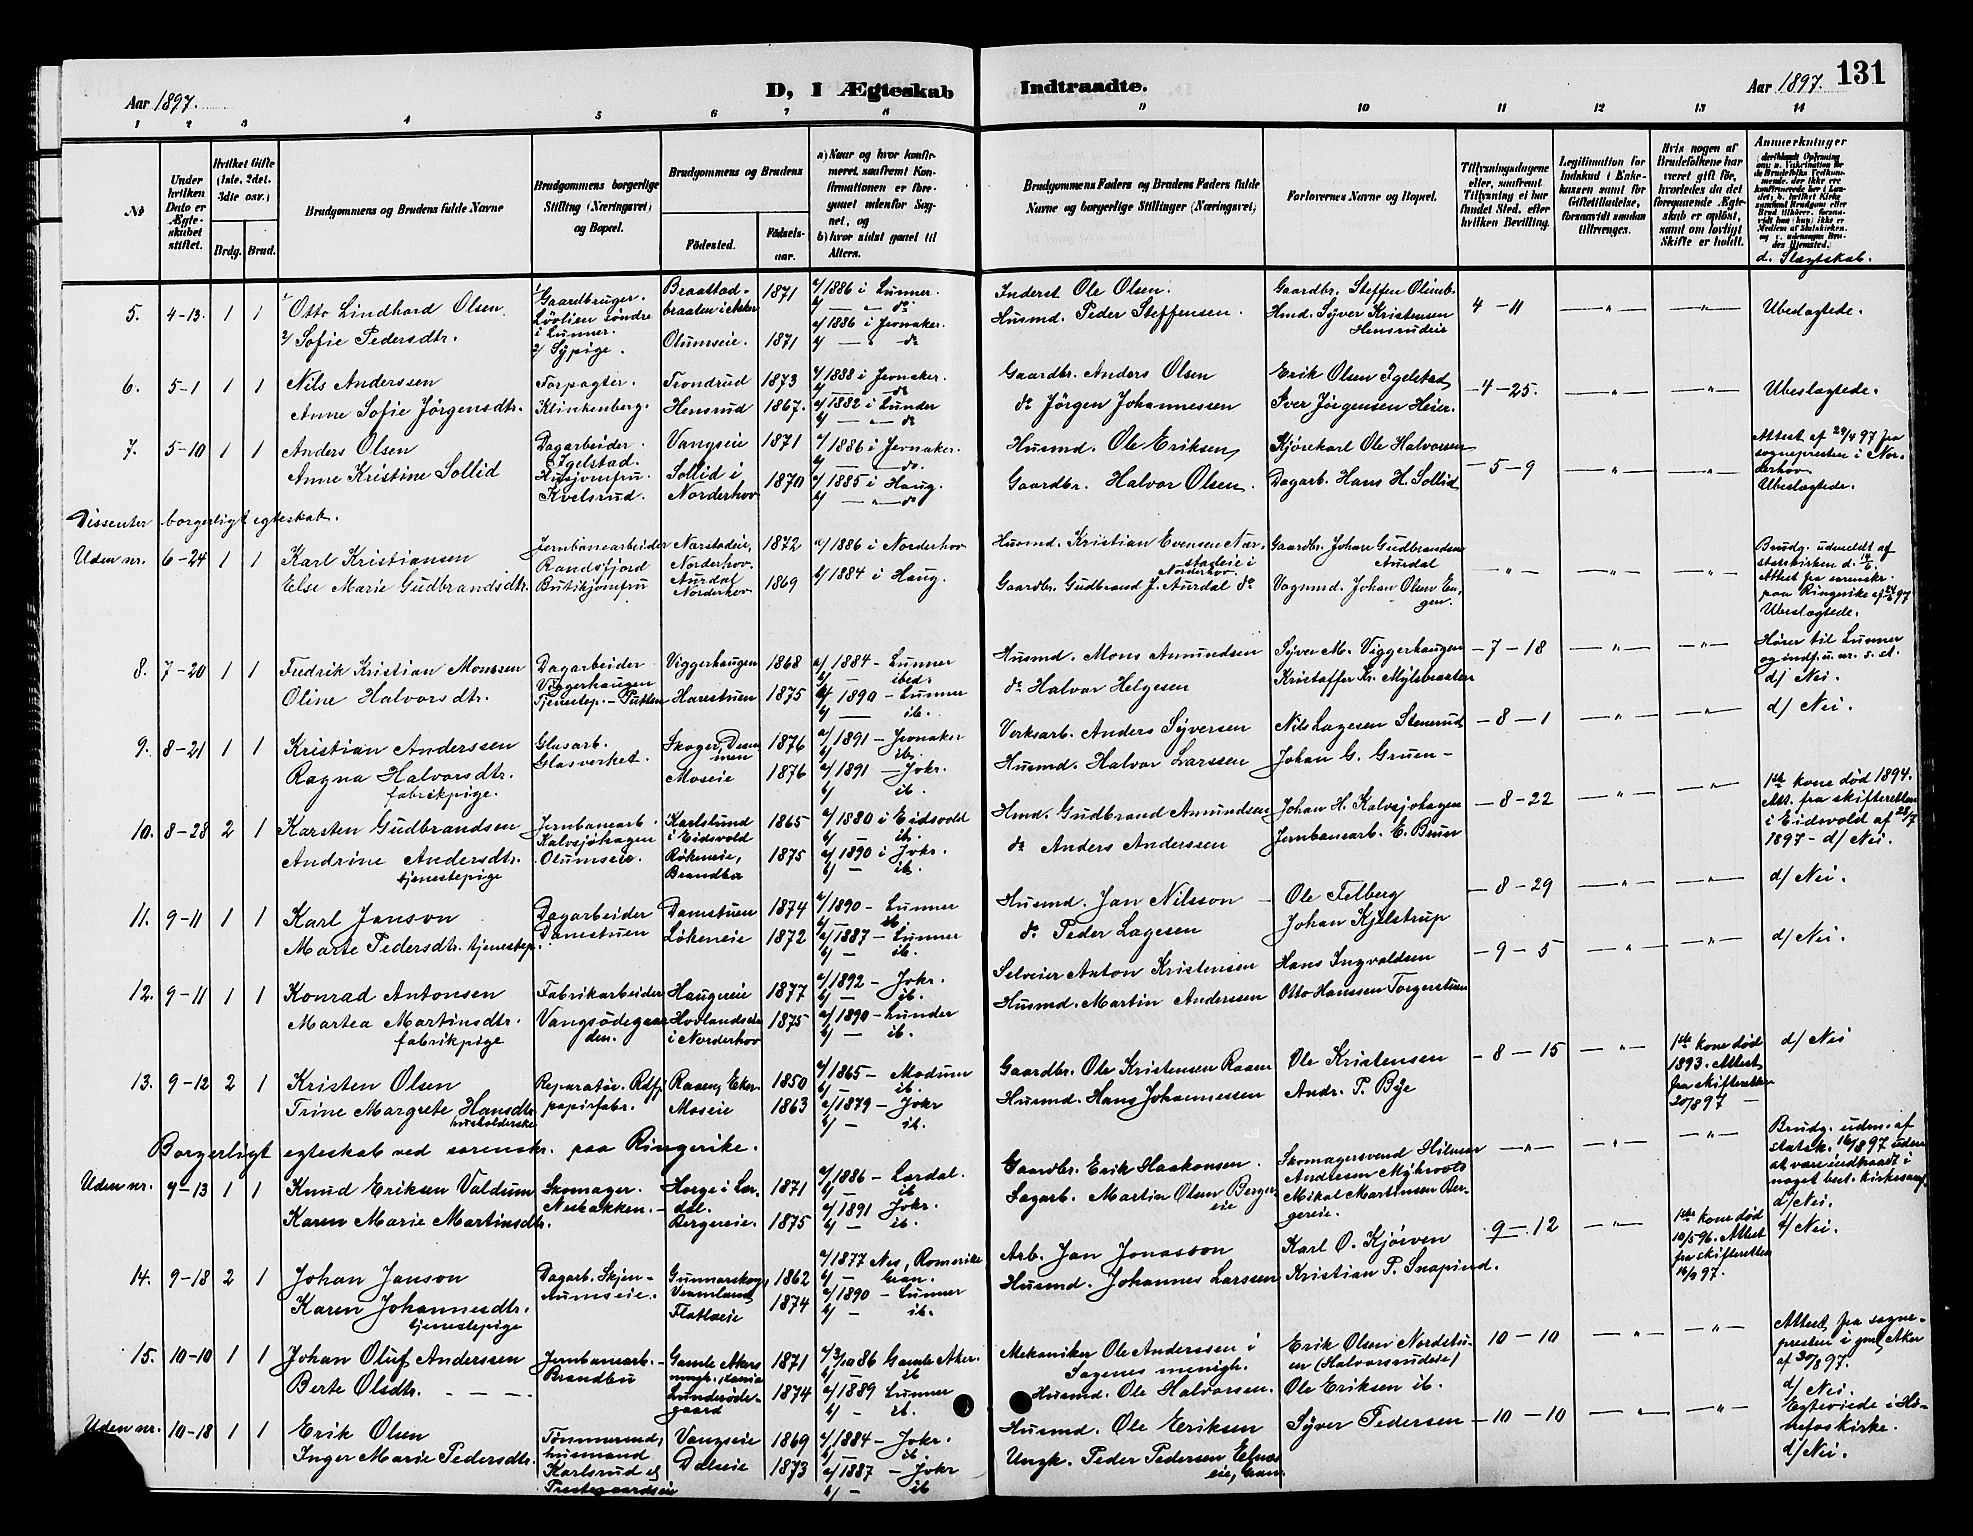 Aar 1897.
D, I Ægteskab
Indtraadte.
Aar 1897.
131
1 2 3 4 5 6 7 8 9 10 11 12 13 14
№
Under hvilken Dato er Ægteskabet stiftet.
Hvilket Gifte (1ste, 2det, 3die osv.)
Brdg. Brud.
Brudgommens og Brudens fulde Navne
Brudgommens borgerlige Stilling (Næringsvei) og Bopæl.
Brudgommens og Brudens
Fødested.
Fødselsaar.
a) Naar og hvor konfirmeret, samt fremt Konfirmationen er foregaaet udenfor Sognet, og
b) hvor sidst gaaet til Alters.
Brudgommens Faders og Brudens Faders fulde Navne og borgerlige Stillinger (Næringsvei)
Forlovernes Navne og Bopæl.
Tillysningsdagene eller, saafremt Tillysning ei har fundet Sted, efter hvilken Bevilling.
Legitimation for Indskud i Enkekassen samt for Giftetilladelse, forsaavidt saadan tiltrænges.
Hvis nogen af Brudefolkene har været gift før, hvorledes da det foregaaende Ægteskab er opløst, samt om lovligt Skifte er holdt.
Anmerkninger
d. Slægtskab.
5. 4-13. 1 1 1/ Otto Lindhard Olsen. 1/ Gaardbruger. Løvlien søndre i Lunner. 1871 a/ 1886 i Lunner. b/ — " — do Inderst Ole Olsen. Gaardbr. Steffen Olimb. 4-11 — " — — " — Ubeslægtede.
2/ Sofie Pedersdtr. 2/ Sypige. Olumseie. 1871 a/ 1886 i Jevnaker. b/ — " — do Husmd. Peder Steffensen. Hmd. Syver Kristensen Hensrudeie
6. 5-1 1 1 Nils Anderssen Forpagter. Trondrud 1873 a/ 1888 i Jevnaker. b/ — do Gaardbr. Anders Olsen Erik Olsen Igelstad — 4-25. — " — — " — Ubeslægtede.
Anne Sofie Jörgensdtr. Klinkenberg. Hensrud 1867. a/ 1882 i Lunder b/ — " — do do Jörgen Johannessen Iver Jörgensen Heier.
7. 5-10 1 1 Anders Olsen Dagarbeider. Igelstad. Vangseie 1871 a/ 1886 i Jevnaker. b/ — " — do. Husmd. Ole Eriksen Kjørekarl Ole Halvorsen — 5-9 — " — — " — Attest af 29/4 97 fra sognepresten i Norderhov
Anne Kristine Sollid Husjomfru. Kvelsrud. Sollid i Norderhov 1870 a/ 1885 i Haug. b/ — " — do Gaardbr. Halvor Olsen. Dagarb. Hans H. Sollid Ubeslægtede.
Dissenter borgerligt egteskab.
Uden nr. 6-24 1 1 Karl Kristiansen Jernbanearbeider Randsfjord Narstadeie, Norderhov. 1872 a/ 1886 i Norderhov Husmd. Kristian Evensen Narstadeie i Norderhov. Gaardbr. Johan Gudbrandsen Aurdal — " — — " — — " — Brudg. udmeldt af statskirken
Else Marie Gudbrandsdtr. Butikjomfru Aurdal Norderhov 1869 b/ 1884 i Haug. Gaardbr. Gudbrand J. Aurdal do Vognmd. Johan Olsen Engen. Attest fra sorenskr. paa Ringerike
Ubeslægtede.
8. 7-20 1 1 Fredrik Kristian Monssen Dagarbeider Viggerhaugen Viggerhaugen 1868 a/ 1884 — Lunner b/ — ibed. Husmd. Mons Amundsen Syver M. Viggerhaugen — 7-18 — " — — " — Hører til Lunner og indf. u. nr. 5. st. d/ Nei.
Oline Halvorsdtr. Tjenestep. — Putten Harestuen 1875 a/ 1890 — Lunner b/ — ib. do Halvor Helgesen Kristoffer Kr. Mylsbraaten
9. 8-21 1 1 Kristian Anderssen Glasarb. Glasverket. Skoger, Drammen 1876 a/ 1891 — Jevnaker b/ ib. Verksarb. Anders Syversen Nils Lagesen Stenrud — 8-1 — " — — " — d/ Nei.
Ragna Halvorsdtr. fabrikpige. Moseie 1876 a/ 1891 — Jvkr. b/ ib. Husmd. Halvor Larssen Johan G. Gruen —
10. 8-28 2 1 Karsten Gudbrandsen Jernbanearb. Kalvsjøhagen Karlslund i Eidsvold 1865 a/ 1880 i Eidsvold b/ — ib. Hmd. Gudbrand Amundsen Johan H. Kalvsjøhagen — 8-22 — " — — " — 1ste kone død 1894. Att. fra skifteretten i Eidsvold af 28/7 1897 — d/ Nei.
Andrine Andersdtr. tjenestepige Olumseie. Røkeneie, Brandbu 1875 a/ 1890 i Jvkr. b/ — ib. do Anders Anderssen Jernbanearb. E. Bruun
11. 9-11 1 1 Karl Janson Dagarbeider Damstuen Damstuen 1874 a/ 1890 — Lunner b/ — ib. Husmd. Jan Nilsson Ole Felberg — 8-29 — " — — " — d/ Nei.
Marte Pedersdtr. tjenestep. Løkeneie 1872 a/ 1887 — Lunner b/ — ib. do Peder Lagesen Johan Kjelstrup
12. 9-11 1 1 Konrad Antonsen Fabrikarbeider Haugereie 1877 a/ 1892 — Jvkr. b/ — ib. Selveier Anton Kristensen Hans Ingvaldsen — 9-5 — " — — " — d/ Nei.
Martea Martinsdtr. fabrikpige Vangsødegaarden. Hovlandseie i Norderhov 1875 a/ 1890 — Lunder b/ — ib. Husmd. Martin Andersen Otto Hanssen Torgerstuen
13. 9-12 2 1 Kristen Olsen Reparatør. Rdfj. papirfabr. Raaen, Eker. 1850 a/ 1865 — Modum b/ — ib. Gaardbr. Ole Kristensen Raaen Ole Kristensen — 8-15 — " — 1ste kone død 1893. Attest fra skifteretten 20/8 97 — d/ Nei
Trine Margrete Hansdtr. husholderske Moseie 1863 a/ 1879 — Jvkr b/ — ib. Husmd. Hans Johannessen Andr. P. Bye
Borgerligt egteskab ved sorenskr. paa Ringerike.
Uden nr. 9-13 1 1 Knud Eriksen Valdum Skomager. Nesbakken. — Horge i Lærdal. 1871 a/ 1886 — Lærdal. b/ — ib Gaardbr. Erik Haakonsen. Skomagersvend Hilmar Andresen Myhrvold — " — — " — — " — Brudg. udm. af statsk. 16/8 97 uden at være indtraadt i noget best. kirkesamf. d/ Nei.
Karen Marie Martinsdtr. Bergereie. 1875 a/ 1891 Jvkr. b/ — ib. Sagarb. Martin Olsen Bergereie Mikal Martinsen Bergereie.
14. 9-18 2 1 Johan Janson Dagarb. Skjenaumseie. Gunnarskog, Vermland 1862 a/ 1877 Nes, Romerike b/ — Gran. Arb. Jan Jonasson Karl O. Kjørven 9-12 — " — 1ste kone død 10/5 96. Attest fra skifteretten d/ Nei.
Karen Johannesdtr. tjenestepige Flatlaeie 1874 a/ 1890 — Lunner b/ — ib. Husmd. Johannes Larssen Kristian P. Snapind.
15. 10-10 1 1 Johan Oluf Anderssen Jernbanearb. — Brandbu Gamle Akers menigh. 1871 a/ 3/10 86 Gamle Aker. b/ — ib Mekaniker Ole Anderssen i Sagenes menigh. Erik Olsen Nordstuen (Halvorsrudeie) 10-10 — " — — " — Attest fra sognepresten i gml. Aker d/ Nei.
Berte Olsdtr. — — — . Lunderødegaard 1874 a/ 1889 Lunner b/ — ib. Husmd. Ole Halvorsen. Ole Eriksen ib.
Uden nr. 10-18 1 1 Erik Olsen Tømmermd, husmand Vangseie 1869 a/ 1884 — Jvkr. b/ — ib. Husmd. Ole Eeriksen Syver Pedersen — 10-10 — " — — " — Egteviede i Hønefos kirke. d/ Nei.
Inger Marie Pedersdtr. Karlsrud af Prestegaardseie Dalseie 1873 a/ 1887 — Jvkr b/ — ib Ungk. Peder Pedersen